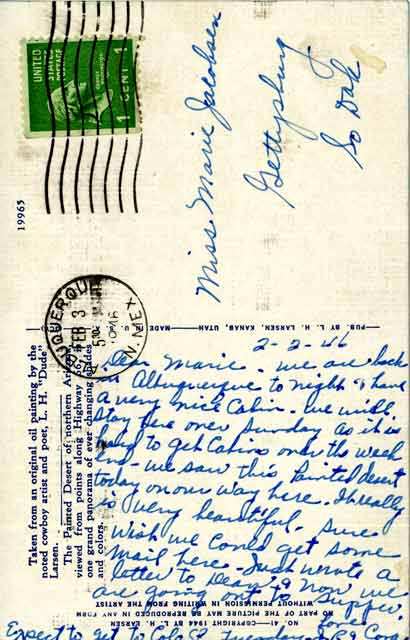 Taken from an original oil painting by the
noted cowboy artist and poet, L. H. "Dude"
Larsen.
The Painted Desert of northern Arizona
viewed from points along Highway 66, is
one grand panorama of ever changing shades
and colors.
19965
PUB. BY L. H. LARSEN, KANAB, UTAH MADE U.
NO. 41—COPYRIGHT 1944 BY L. H. LARSEN
NO PART OF THE PICTURE MAY BE REPRODUCED IN ANY FORM
WITHOUT PERMISSION IN WRITING FROM THE ARTIST
UNITED
STATES
POSTAGE
1 CENT 1
ALBUQUERQUE
FEB 3
530
N. MEX.
Miss Marie Jacobsen
Gettysburg
So Dak
2-2-46
Dear Marie - we are back
in Albuquerque to night & have
a very nice Cabin. we will
stay here over Sunday as it is
hard to get Cabins over the week
end - we saw this Painted desert
today on our way here. It really
is very beautiful. Sure
wish we could get some
mail here. Just wrote a
letter to Dean & now we
are going out to supper.
Love
Expect to get to Colo